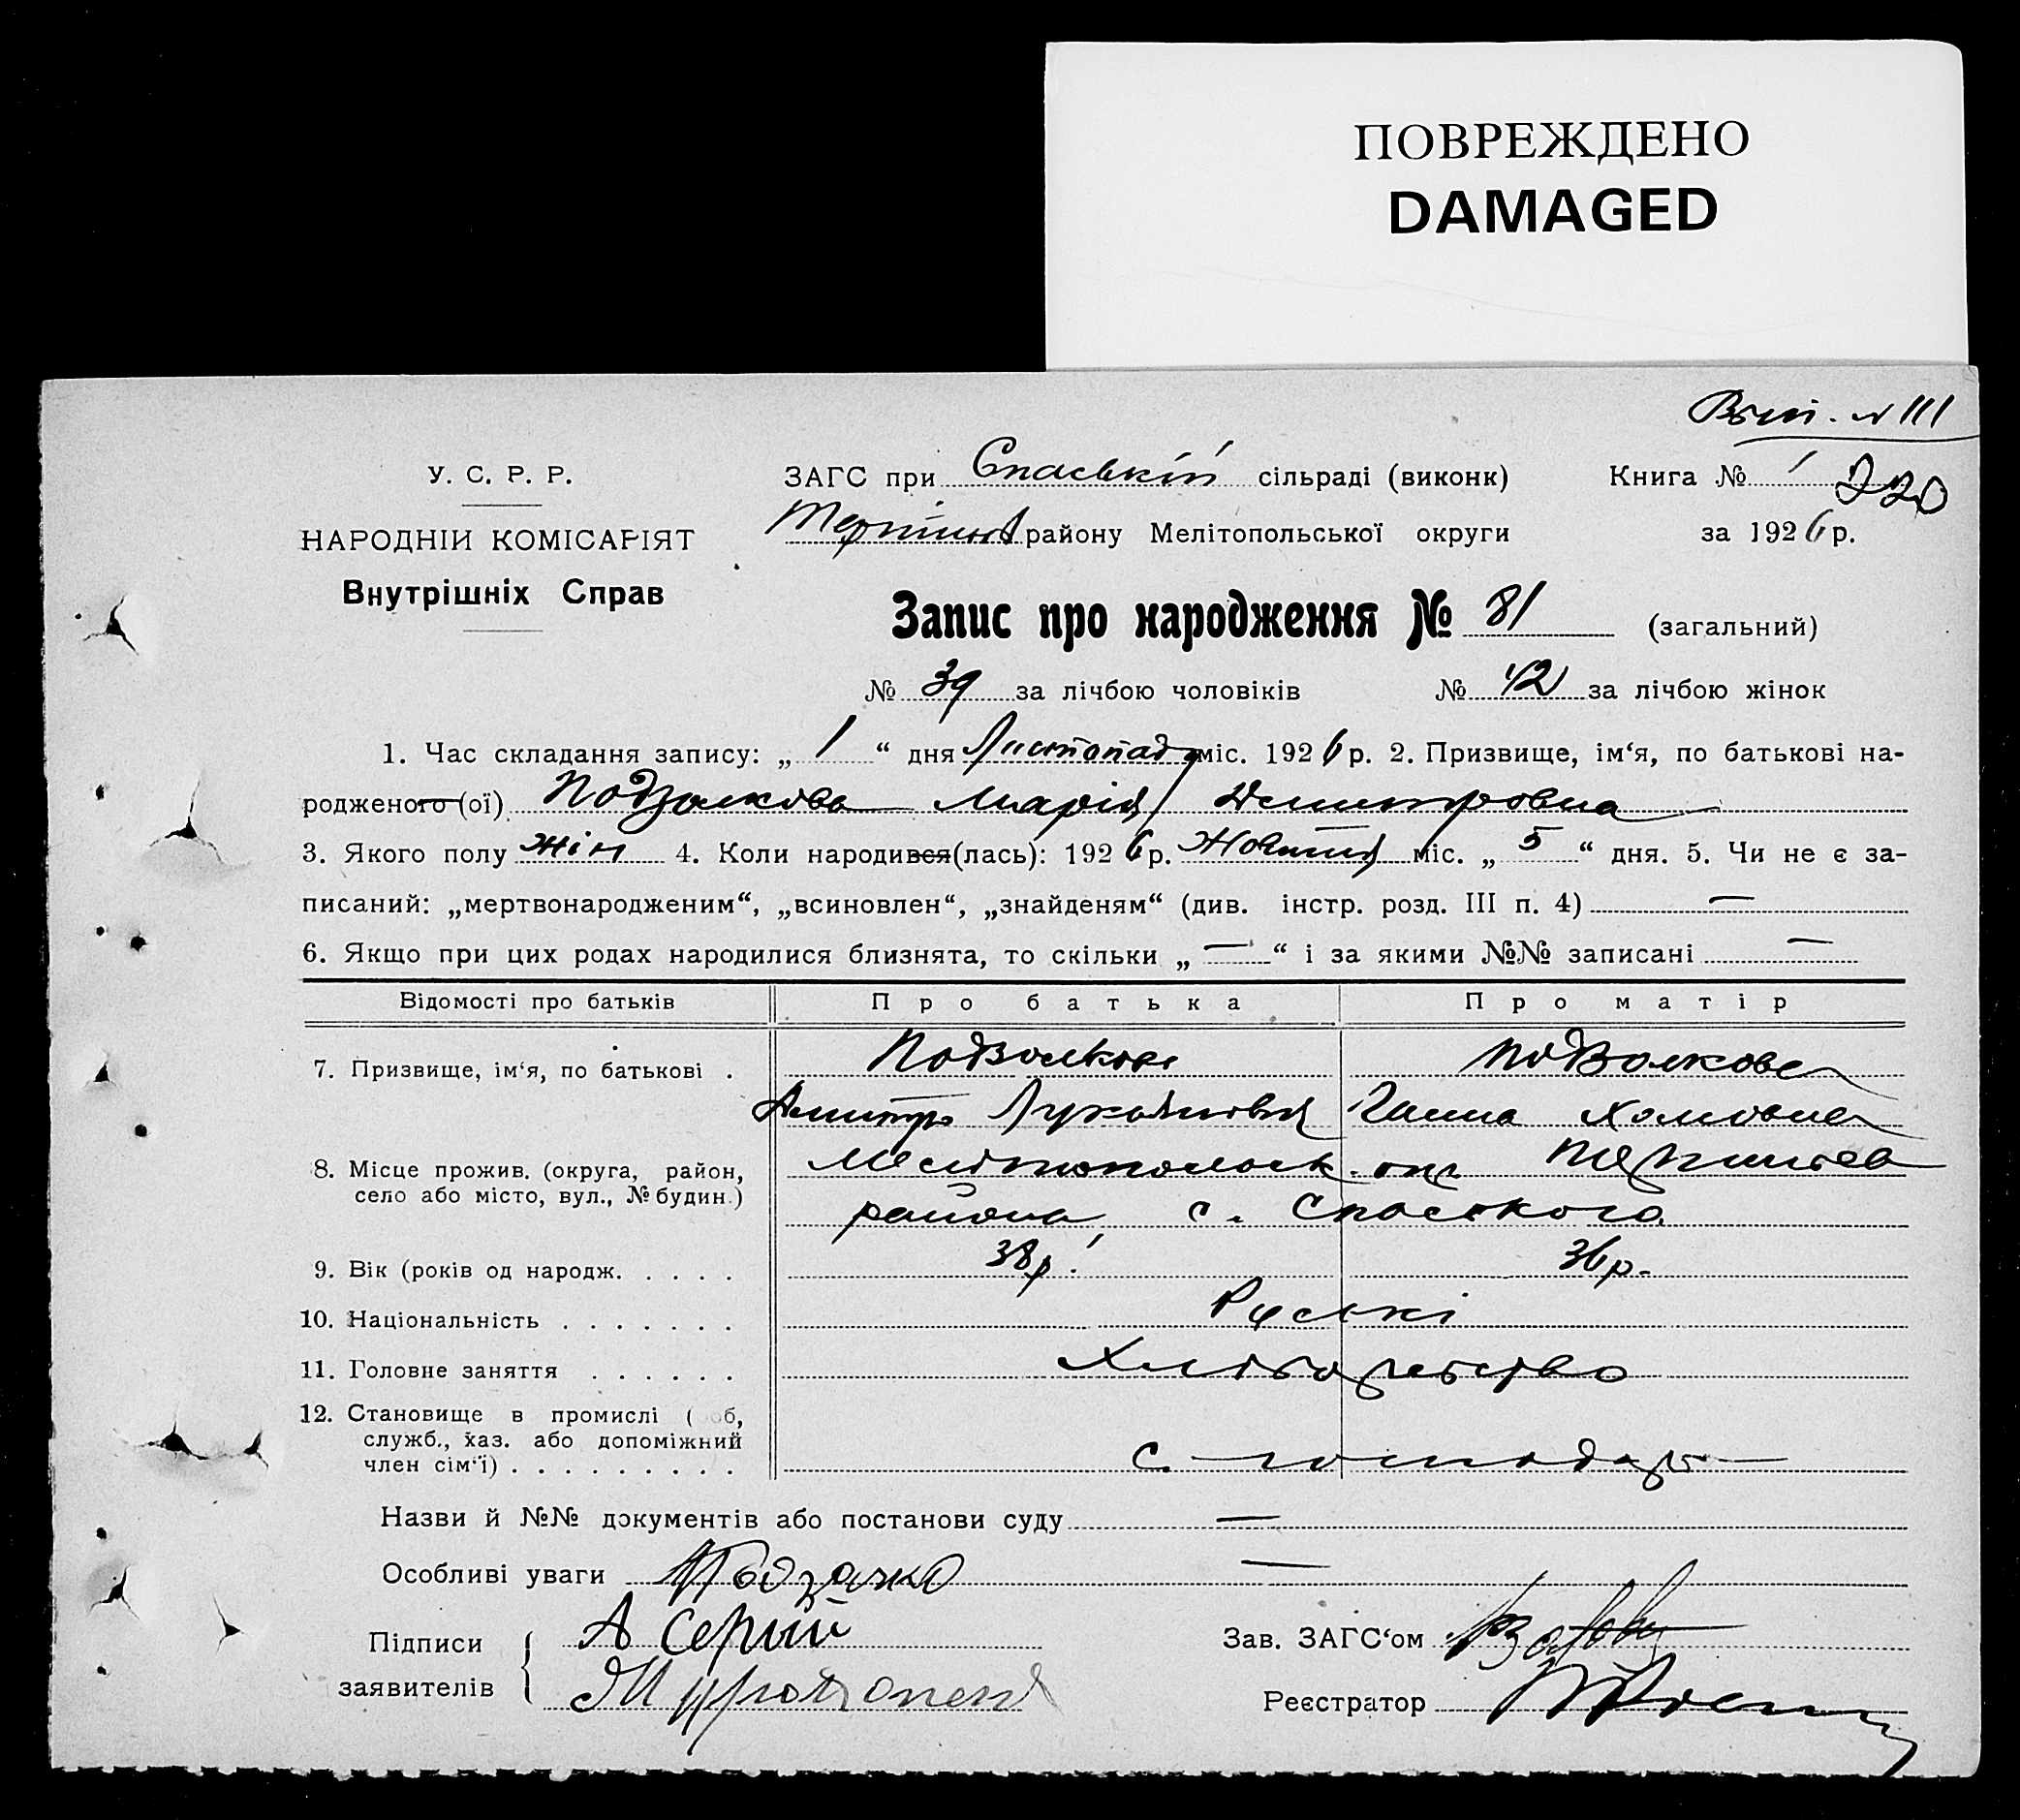 ПОВРЕЖДЕНО
DAMAGED
№ 111
У. С. Р. Р.
НАРОДНІЙ КОМІСАРІЯТ
Внутрішніх Справ
ЗАГС при Спаській сільраді (виконк)
району Мелітопольської округи
Книга № 1 220
за 1926 р.
Запис про народження № 81 (загальний)
№ 39 за лічбою чоловіків № 42 за лічбою жінок
1. Час складання запису: „ 1 “ дня Листопада міс. 1926 р. 2. Призвище, ім‘я, по батькові на-
родженого (ої) Подволкова Марія Дмитровна
3. Якого полу жін 4. Коли народився (лась): 1926 р. Жовтня міс. „ 5 “ дня. 5. Чи не є за-
писаний: „мертвонародженим“, „всиновлен“, „знайденям“ (див. інстр. розд. III п. 4) —
6. Якщо при цих родах народилися близнята, то скільки „ — “ і за якими №№ записані —
Відомості про батьків Про батька Про матір
7. Призвище, ім‘я, по батькові . Подволков Подволкова
Дмитро Лукьянович Ганна Хомовна
8. Місце прожив. (округа, район, Мелітопольск. окр.
село або місто, вул., № будин.) района с. Спаського
9. Вік (років од народж. . . . . 38 р. 36 р.
10. Національність . . . . . . . Руські
11. Головне заняття . . . . . . Хліборобство
12. Становище в промислі ( об,
служб., хаз. або допоміжний
член сім‘ї) . . . . . . . . . С. — господарь —
Назви й №№ документів або постанови суду —
Особливі уваги —
Підписи А Серий
заявителів
Зав. ЗАГС‘ом
Реєстратор